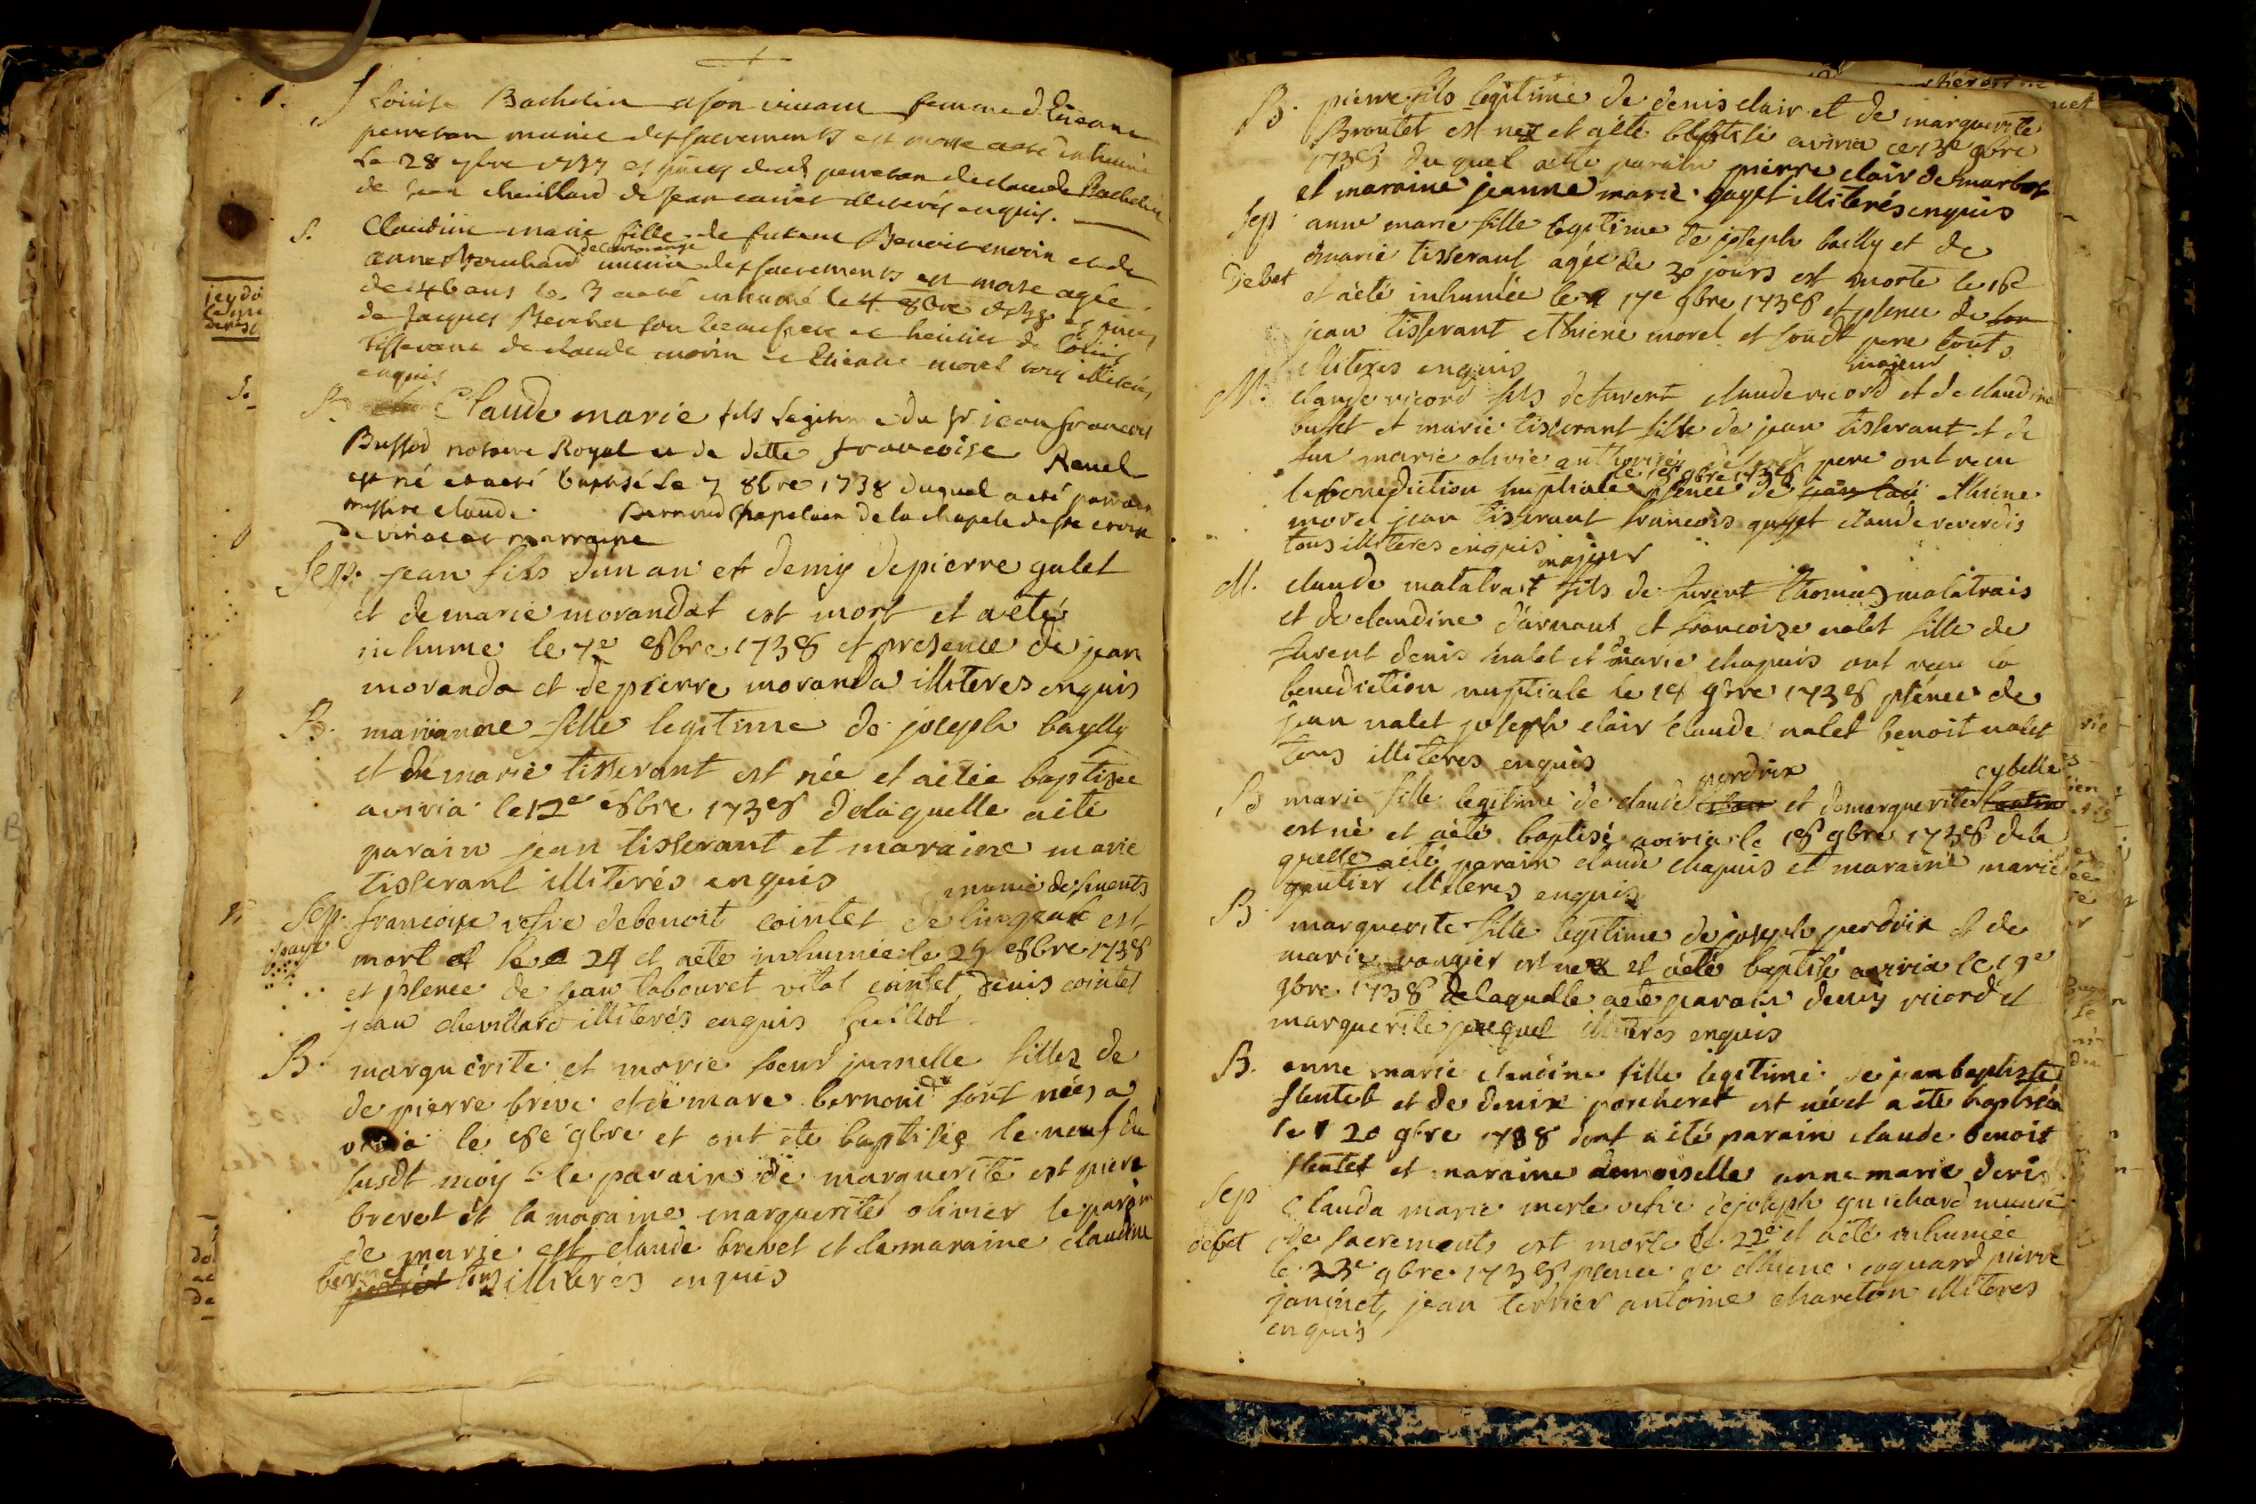 S Louise Bachelin a son vivant femme d'Etienne
perreton munie des sacrements est morte a esté inhumé
Le 28 7bre 1737 et puis dud perreton de claude Bachelin
de jean chevillard de jean illiterés enquis.
S. Claudine marie fille de furent Benoit morin et de
anne Bouchard munie des sacrements est morte agée
de 46 ans le 3 a esté inhumé le 4 8bre 1738
de jacques son beaufrere et heritier de
Tisserant de claude morin et Etienne morel tous illiterés
enquis
B. Claude marie fils Legitime du sr jean francois
Buffod notaire Royal et de dette francoise Revel
est né et a eté baptisé Le 7 8bre 1738 duquel a eté parain
messire claude Bernard Chapelain de la chapele de ste croix
de viria et marraine
Sep. jean fils dun an et demy de pierre galet
et de marie morandat est mort et aeté
inhume le 7e 8bre 1738 et presence de jean
moranda et de pierre moranda illiteres enquis
B. mariianne fille legitime de joseph baylly
et de marie tisserant est née et aétée baptisee
a viria le 12e 8bre 1738 de laquelle aété
parain jean tisserant et maraine marie
tisserant illiterés enquis
munie des sments
Sep. francoise vefve de benoit cointet de lingeat est
paye mort et le 24 et aeté inhumée le 25 8bre 1738
et psence de jean tabouret vital cointet denis cointet
jean chevillard illiterés enquis Guillot
B. marguerite et marie soeur jumelle filles de
de pierre breve et de marie bernond sont nées a
viria le 8e 9bre et ont ete baptisés le neuf du
susdt moy le parain de marguerite est piere
brevet et la maraine marguerite olivier le parain
de marie est claude brevet et la maraine claudine
bernet tous illiterés enquis
B. pierre fils legitime de denis clair et de marguerite
Broutet est nez et aété bsptisé a viria ce 13e 9bre
1738 du quel aété parain pierre clair de marboz
et maraine jeanne marie gayet illiterés enquis
Sep anne marie fille legitime de joseph bailly et de
debet marie tisserant agée de 30 jours est morte le 16e
et aété inhumée le 17e 9bre 1738 et psence de son
jean tisserant ethiene morel et sondt pere touts
illiteres enquis
majeur
M. claude ricord fils de furent claude ricord et de claudine
buffet et marie tisserant fille de jean tisserant et de
fue marie olivie authorisée de sondt pere ont recu
le 18 9bre 1738
la benediction nuptiale psence de ethiene
morel jean tisserant francois gayet claude reverdis
tous illiteres enquis
majeur
M. claude malatrait fils de furent thomas malatrais
et de claudine darnaut et francoize nalet fille de
furent denis nalet et marie chapuis ont recu la
benediction nuptiale le 18 9bre 1738 psence de
jean nalet joseph clair claude nalet benoit nalet
tous illiteres enquis
perdrix cybelle
B marie fille legitime de claude et de marguerite
est né et aété baptisé a viria le 18 9bre 1738 de la
quelle aété parain claude chapuis et maraine marie
gautier illiteres enquis
B marguerite fille legitime de joseph perdrix et de
marie vangier est nez et aété baptisé a viria le 19e
9bre 1738 de laquelle aete parain denis ricord et
marguerite jacquet illiteres enquis
B. anne marie claudine fille legitime de jean baptiste
stentet et de denise porcheret est néé et a été baptisée
le 20 9bre 1738 dont a été parain claude benoit
stentet et maraine demoiselle anne marie
Sep Clauda marie merle vefve de joseph guichard munie
debet de sacrements est morte le 22e et aété inhumée
le 23e 9bre 1738 psence de ethiene coguard pierre
janinet, jean terrier antoine chareton illiteres
enquis